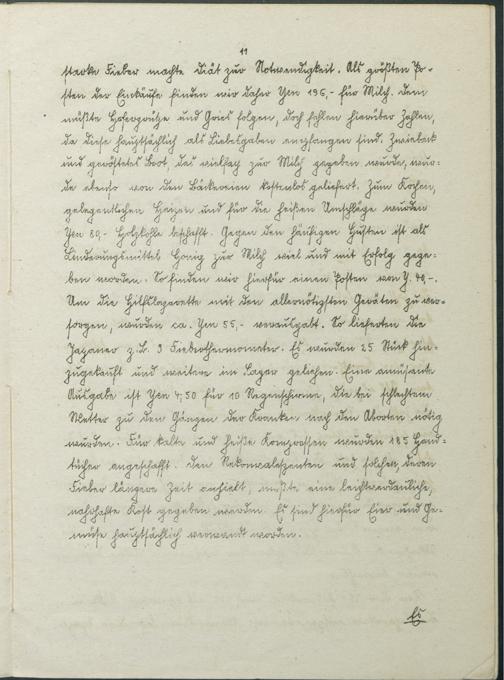 11
starke Fieber machte Diät zur Notwendigkeit. Als größten Po-
sten der Einkäufe finden wir daher Yen 196,- für Milch. Dem
müßte Hafergrütze und Gries folgen, doch fehlen hierüber Zahlen,
da diese hauptsächlich als Liebesgaben empfangen sind. Zwieback
und geröstetes Brot, das vielfach zur Milch gegeben wurde, wur-
de ebenso von den Bäckereien kostenlos geliefert. Zum Kochen,
gelegentlichen Heizen und für die heißen Umschläge wurden
Yen 80,- Holzkohle beschafft. Gegen den häufigen Husten ist als
Linderungsmittel Honig zur Milch viel und mit Erfolg gege-
ben worden. So finden wir hierfür einen Posten von Y. 40,-.
Um die Hilfslazarette mit den allernötigsten Geräten zu ver-
sorgen, wurden ca. Yen 55,- verausgabt. So lieferten die
Japaner z.B. 3 Fieberthermometer. Es wurden 25 Stück hin-
zugekauft und weitere im Lager geliehen. Eine amüsante
Ausgabe ist Yen 4,50 für 10 Regenschirme, die bei schlechtem
Wetter zu den Gängen der Kranken nach den Aborten nötig
wurden. Für kalte und heiße Kompressen wurden 185 Hand-
tücher angeschafft. Den Rekonvaleszenten und solchen, deren
Fieber längere Zeit anhielt, mußte eine leichtverdauliche,
nahrhafte Kost gegeben werden. Es sind hierfür Eier und Ge-
müse hauptsächlich verwandt worden.
Es